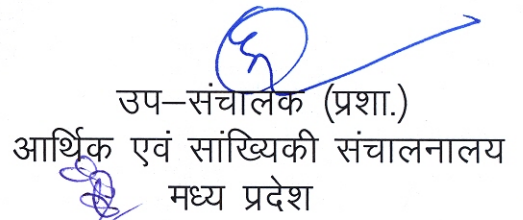 उप–संचालक (प्रशा.)
आर्थिक एवं सांख्यिकी संचालनालय
मध्य प्रदेश